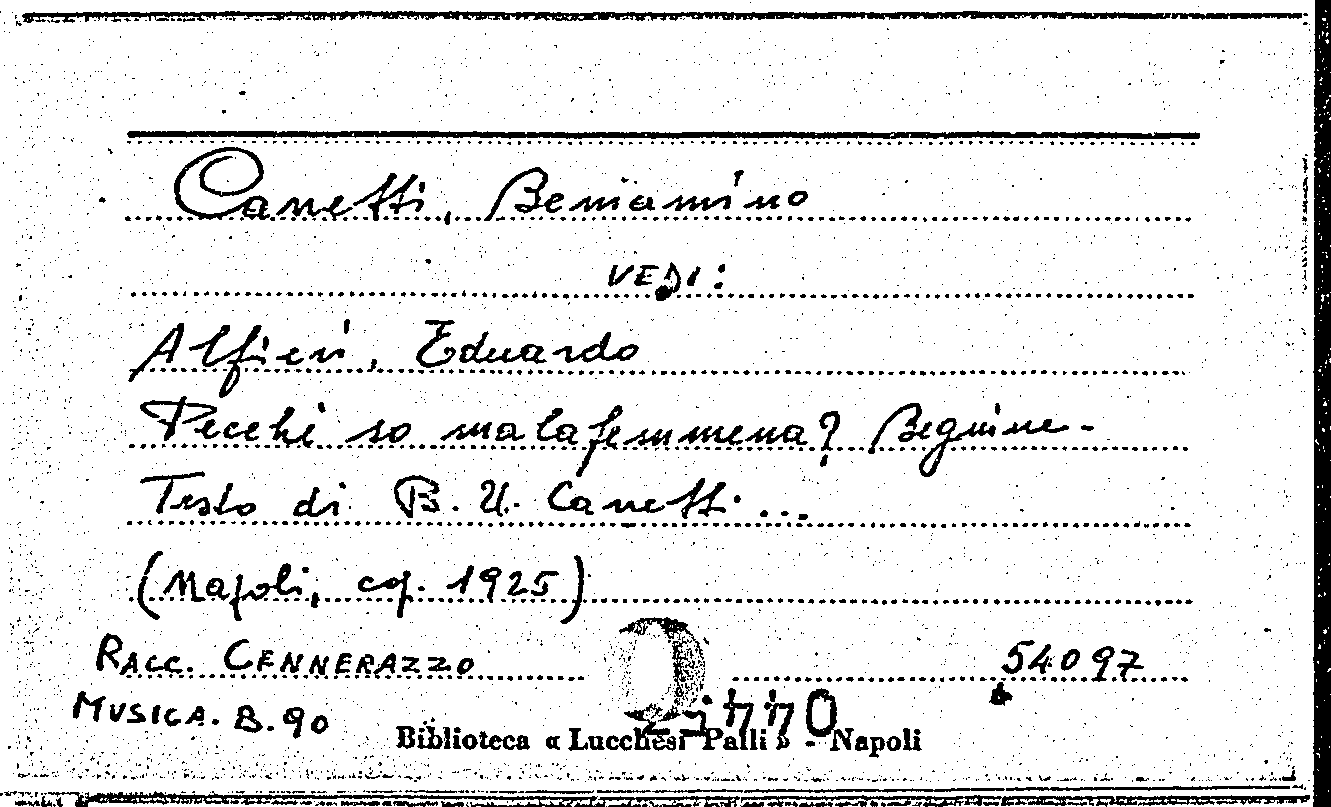 Canetti, Beniamino
VEDI:
Alfieri, Eduardo
Pecchè so malafemmena? Beguine -
Testo di B. U. Canetti ...
(Napoli, cop. 1925)
RACC. CENNERAZZO
54097
MUSICA. B. 90
Biblioteca « Lucchesi Palli » - Napoli